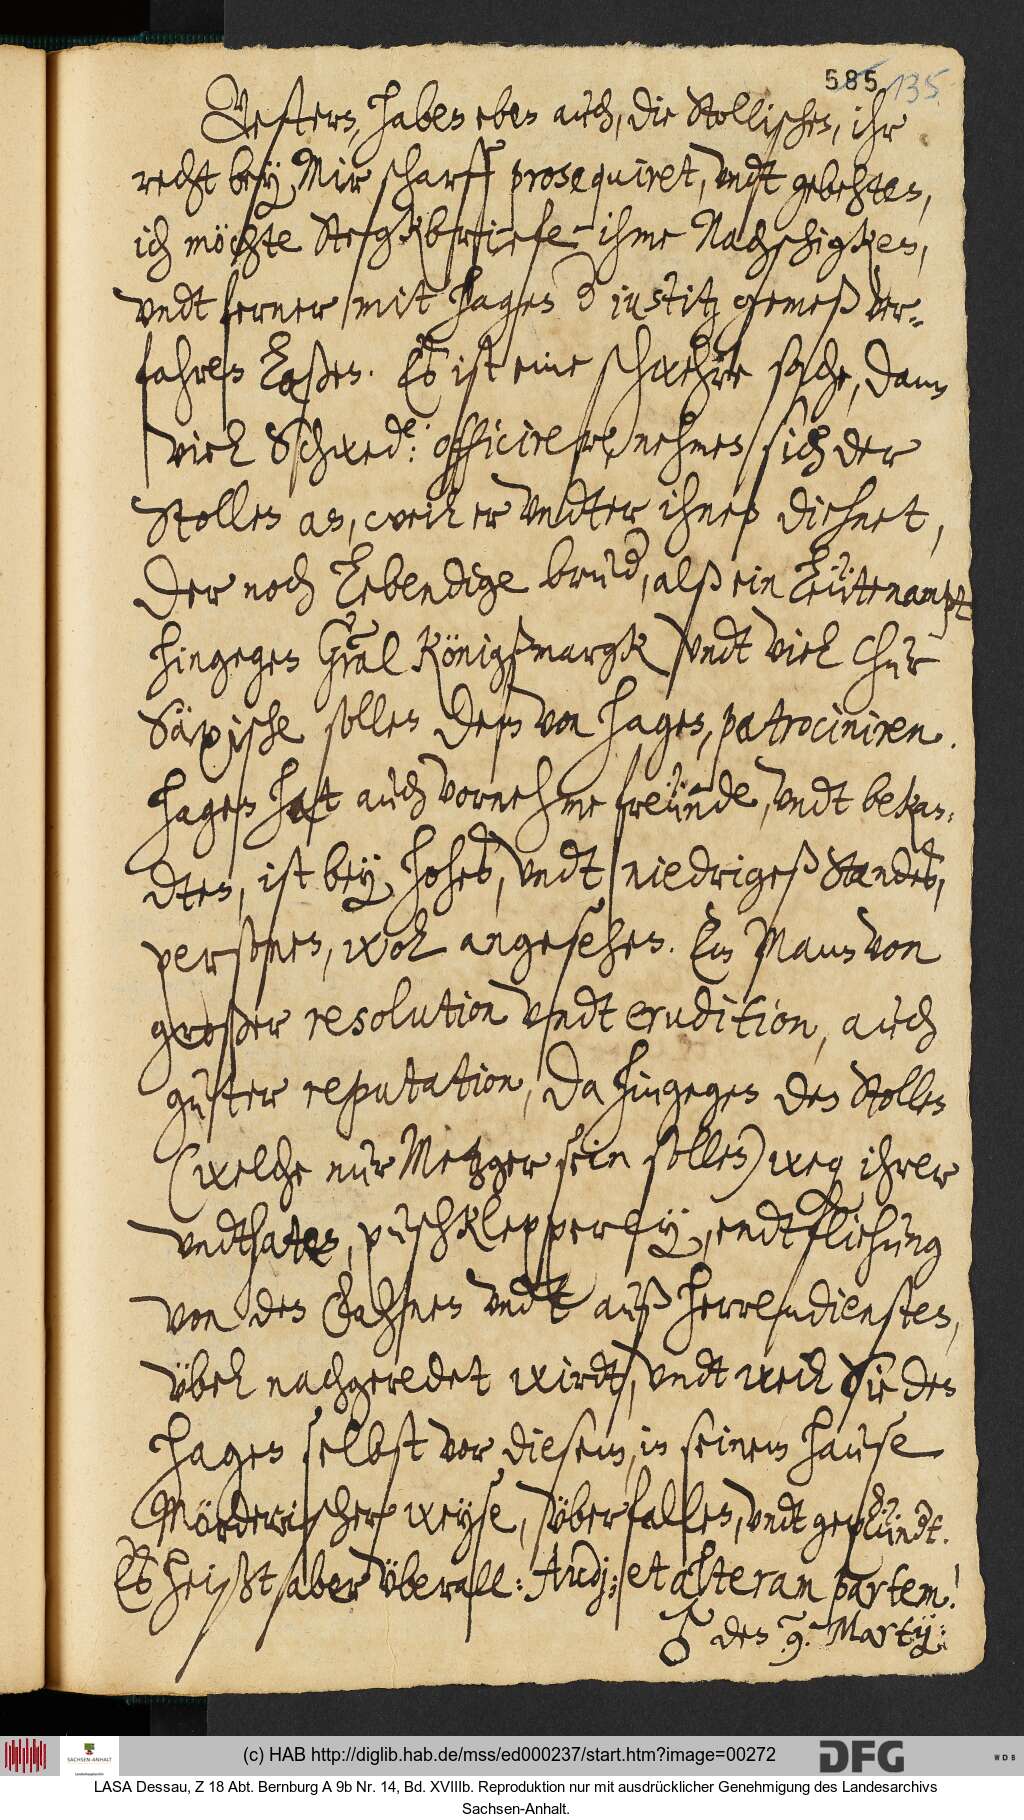 585 135
Gestern, haben eben auch, die Stollischen, ihr
recht bey Mir scharff prosequiret, undt gebehten,
ich möchte Stegkbriefe ihme Nachschigken,
undt ferner mit Hagen der justitz gemeß ver-
fahren laßen. Es ist eine schwehre sache, dann
viel Schwed: officirer, nehmen sich der
Stollen an, weil er undter ihnen diehnet,
der noch lebendige brud, alß ein Leütenampt
hingegen Gral Königßmargk undt viel Chur
Säxische sollen dem von Hagen, patrociniren.
Hagen hat auch vornehme freünde, undt bekan-
dten, ist bey hohes, undt niedriges Standes,
personen, wol angesehen. Ein Mann von
großer resolution undt erudition, auch
guter reputation, da hingegen den Stollen
(welche nur Metzger sein sollen) weg ihrer
undthaten, puschklepperey, endtfliehung
von den Fahnen undt auß Herrendiensten,
übel nachgeredet wirdt, undt weil Sie den
Hagen selbst vor diesem, in seinem Hause
Mörderischer weyse, überfallen, undt geplündt.
Es heißt aber überall: Audj: et alteram partem!
♂ den 9. Martij:
(c) HAB http://diglib.hab.de/mss/ed000237/start.htm?image=00272
SACHSEN-ANHALT
DFG
WDB
LASA Dessau, Z 18 Abt. Bernburg A 9b Nr. 14, Bd. XVIIIb. Reproduktion nur mit ausdrücklicher Genehmigung des Landesarchivs
Sachsen-Anhalt.